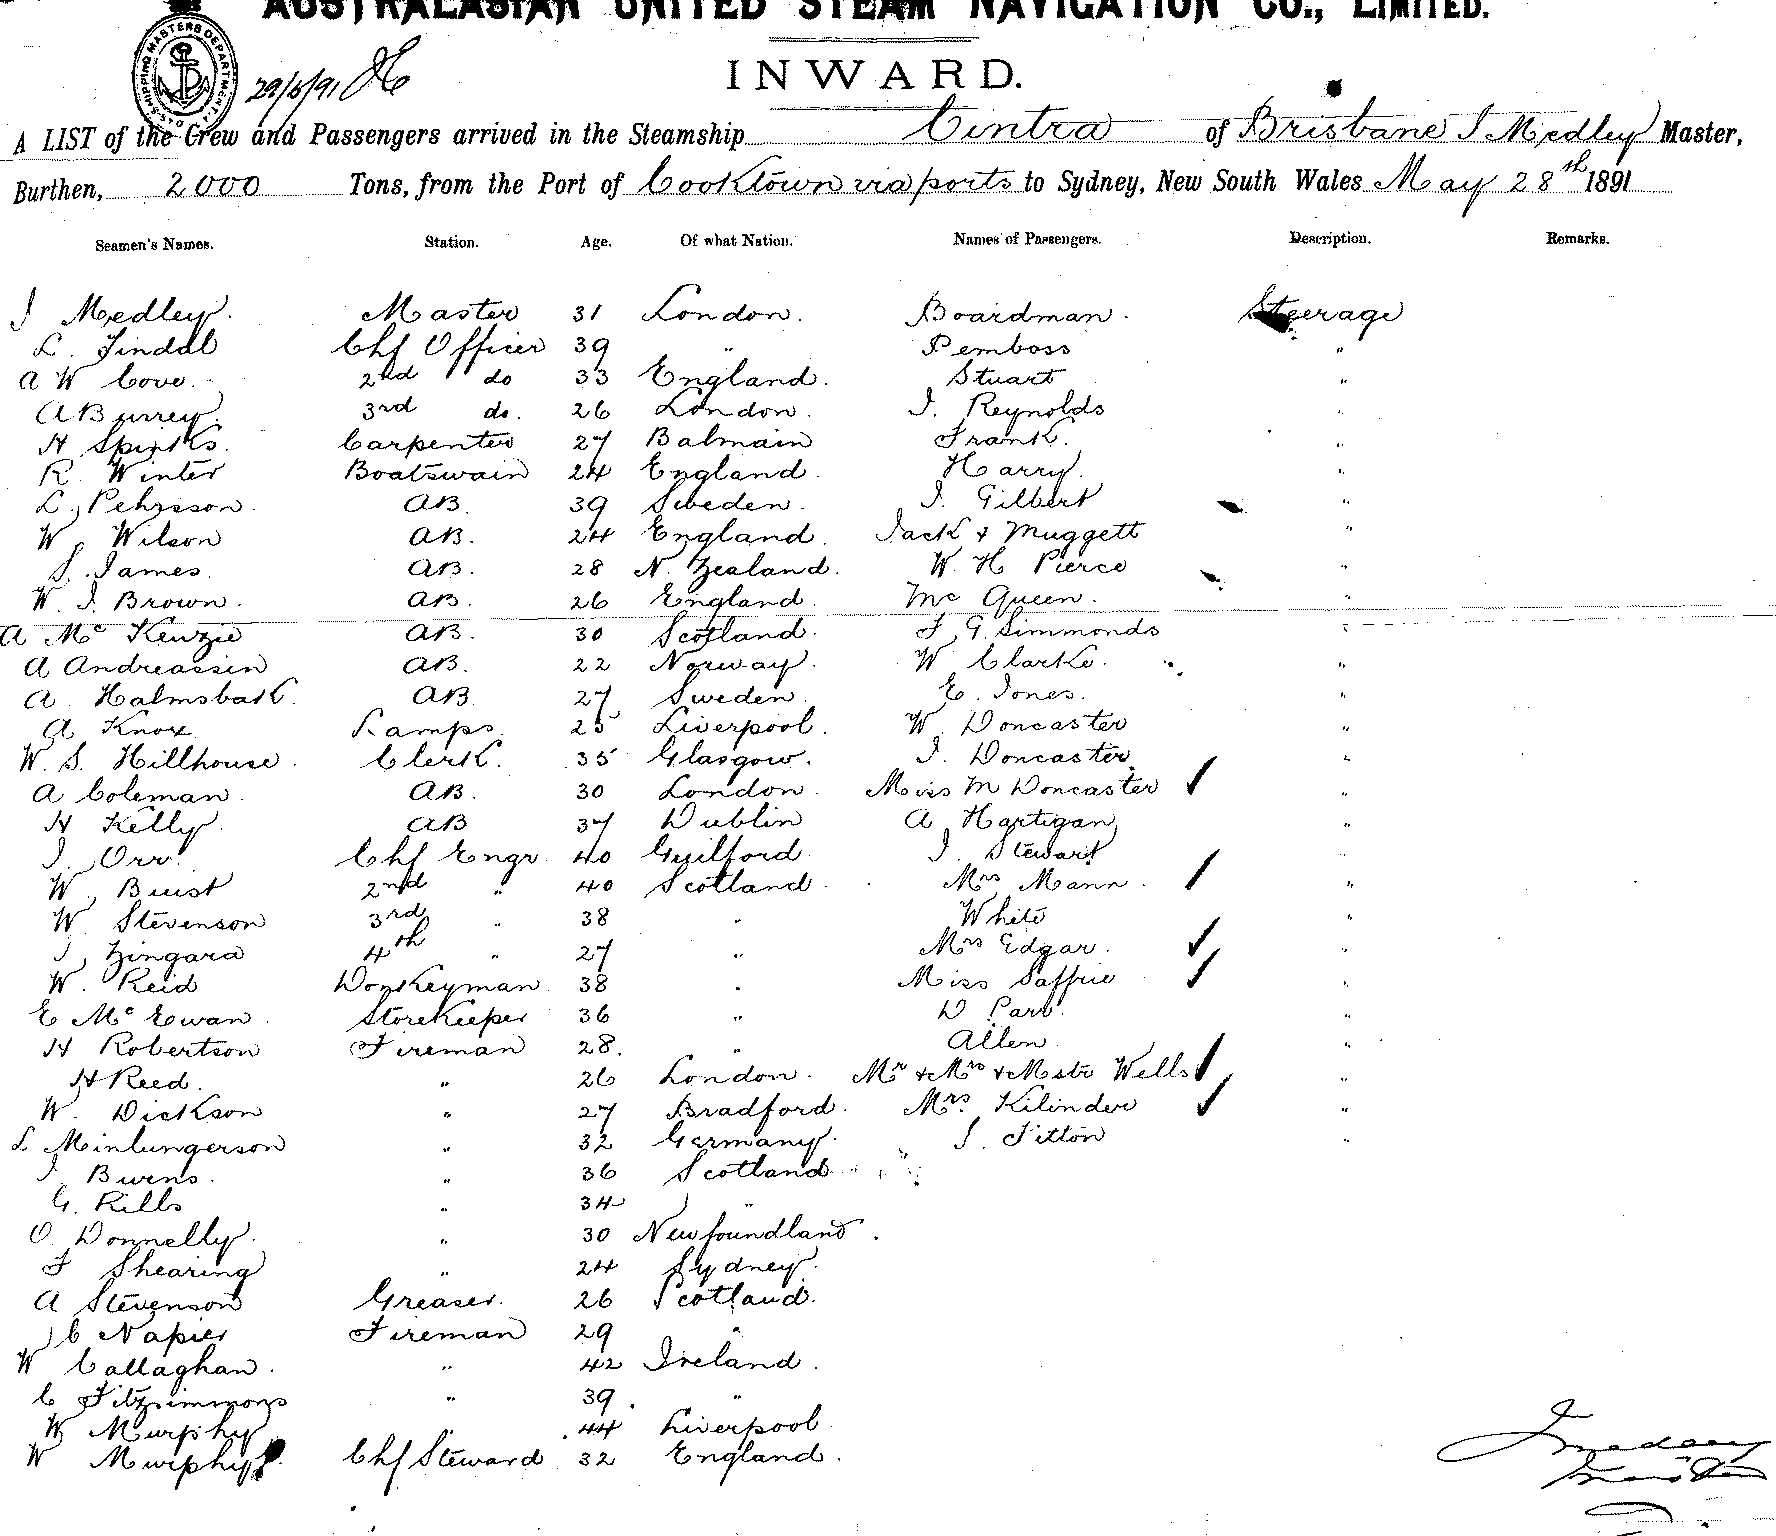 AUSTRALASIAN UNITED STEAM NAVIGATION CO., LIMITED.
SHIPPING MASTERS DEPARTMENT
29/5/91
INWARD.
A LIST of the Crew and Passengers arrived in the Steamship Cintra of Brisbane J Medley Master,
Burthen, 2000 Tons, from the Port of Cooktown via ports to Sydney, New South Wales May 28th 1891
Seamen's Names. Station. Age. Of what Nation. Names of Passengers. Description. Remarks.
J Medley. Master 31 London. Boardman. Steerage
L. Tindal Chf Officer 39 " Pemboss "
A W Cove. 2nd " do 33 England. Stuart "
A Burrey. 3rd do. 26 London. J. Reynolds "
H Spinks. Carpenter 27 Balmain Frank. "
R. Winter Boatswain 24 England Harry. "
L. Pehrsson. AB. 39 Sweden. J. Gilbert "
W. Wilson AB. 24 England. Jack & Muggett "
S. James. AB. 28 N. Zealand. W. H Pierce "
W. J. Brown. AB. 26 England. Mc Queen. "
A Mc Kenzie AB. 30 Scotland. F. G. Simmonds "
A Andreassen AB. 22 Norway. W Clarke. "
A. Halmsbak. AB 27 Sweden. E. Jones. "
A Knox Lamps. 25 Liverpool. W. Doncaster "
W. S. Hillhouse. Clerk. 35 Glasgow. J. Doncaster "
A Coleman. AB. 30 London. Miss M Doncaster "
H Kelly. AB 37 Dublin A Hartigan "
J. Orr. Chf Engr. 40 Guilford. J. Stewart "
W. Buist 2nd " 40 Scotland. Mrs Mann. "
W. Stevenson 3rd " 38 " White "
J. Zingara 4th " 27 " Mrs Edgar. "
W. Reid Donkeyman. 38 " Miss Saffrie "
E Mc Ewan. Storekeeper 36 " D Parb. "
H Robertson Fireman 28. " Allen "
H Reed. " 26 London. Mr & Mrs & Mstr Wells "
W. Dickson " 27 Bradford. Mrs. Kilinder "
L Minlungerson " 32 Germany. J. Titton "
J. Burns. " 36 Scotland
G. Rills " 34 "
O. Donnelly. " 30 Newfoundland.
F Shearing " 24 Sydney.
A Stevenson Greaser. 26 Scotland.
J C Napier Fireman 29 "
W Callaghan. " 42 Ireland.
C Fitzsimmons " 39. "
W Murphy " 44 Liverpool
W Murphy Chf Steward 32 England.
J Medley
Master